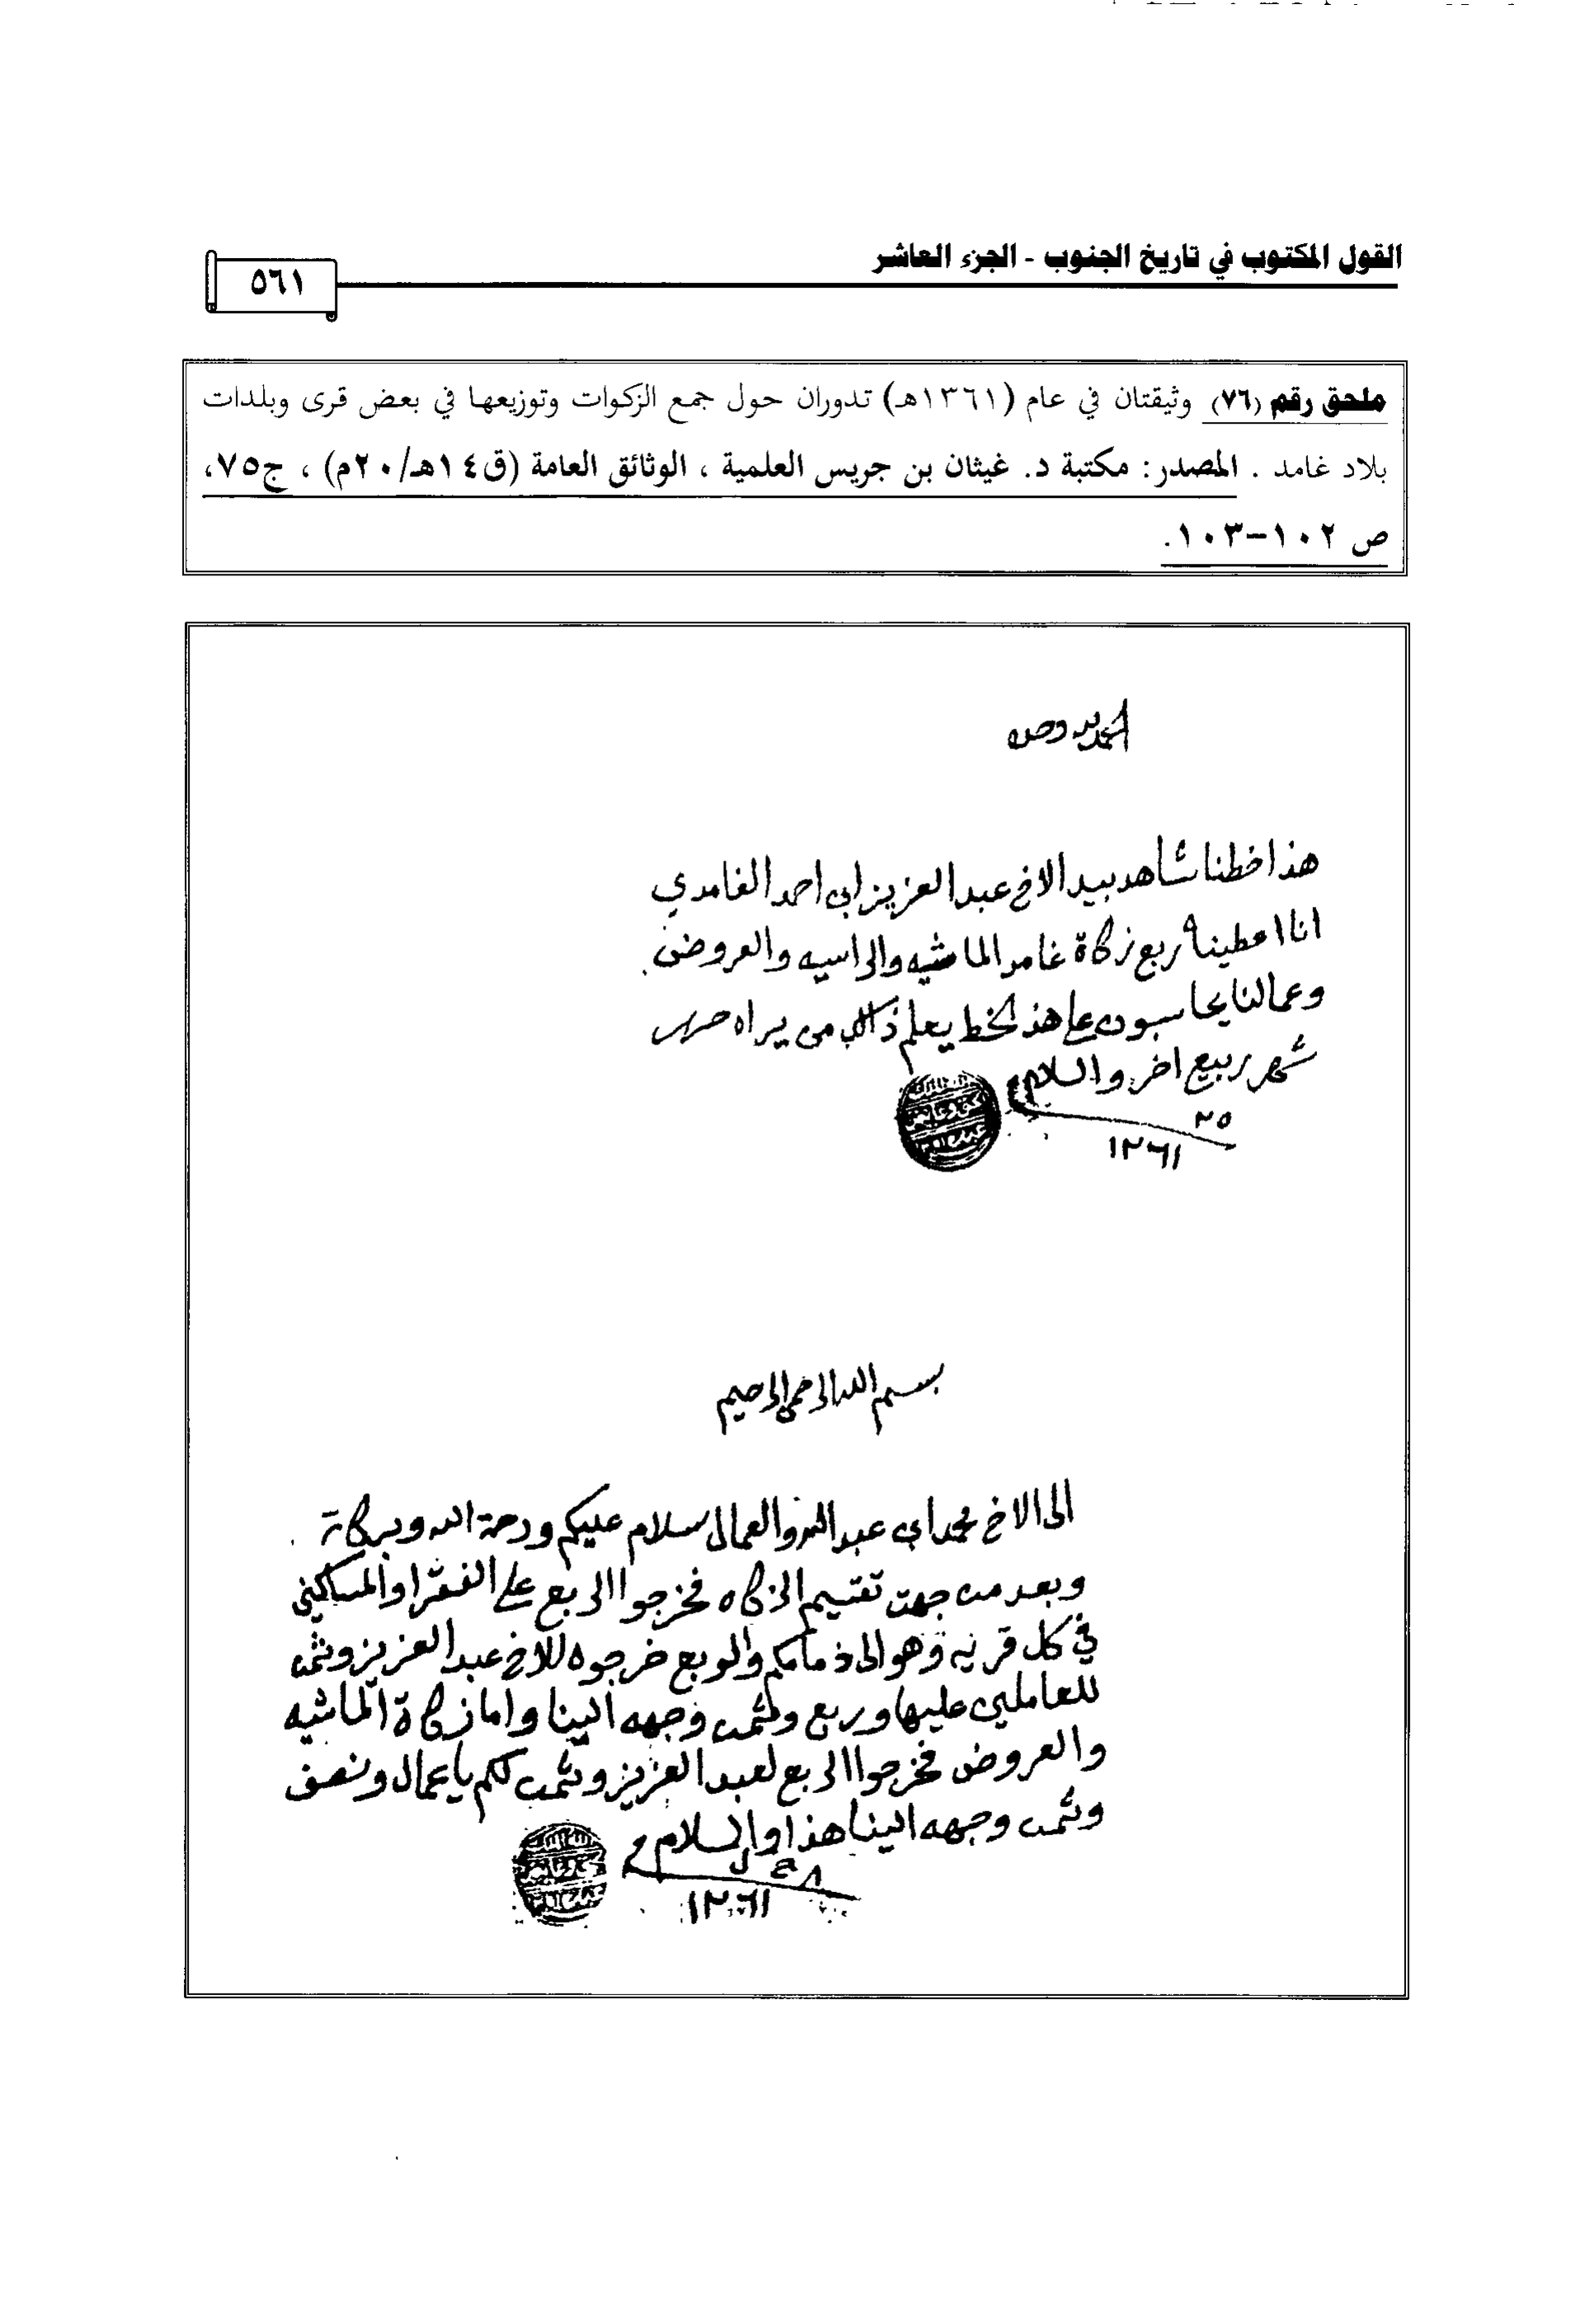 القول المكتوب في تاريخ الجنوب - الجزء العاشر
٥٦١
ملحق رقم (٧٦) وثيقتان في عام (١٣٦١هـ) تدوران حول جمع الزكوات وتوزيعها في بعض قرى وبلدات
بلاد غامد . المصدر: مكتبة د. غيثان بن جريس العلمية ، الوثائق العامة (ق١٤هـ/٢٠م) ، ج٧٥،
ص ١٠٢-١٠٣.
الحمد لله وحده
هذا خطنا شاهد بيد الاخ عبد العزيز ابن احمد الغامدي
انا اعطيناه ربع زكاة غامد الماشيه والراسيه والعروض
وعمالنا يحاسبون على هذ الخط يعلم ذالك من يراه حرر
شهر ربيع اخر والسلام
٢٥
١٣٦١
بسم الله الرحمن الرحيم
الى الاخ محمد ابن عبد الله والعمال سلام عليكم ورحمة الله وبركاته
وبعد من جهت تقسيم الزكاه فخرجوا الربع على الفقرا والمساكين
في كل قريه وهو الى ذمامكم والربع خرجوه للاخ عبد العزيز وثمن
للعاملين عليها وربع وثمن وجهه الينا واما زكاة الماشيه
والعروض فخرجوا الربع لعبد العزيز وثمن لكم يا عمال ونصف
وثمن وجهه الينا هذا والسلام
١٣٦١